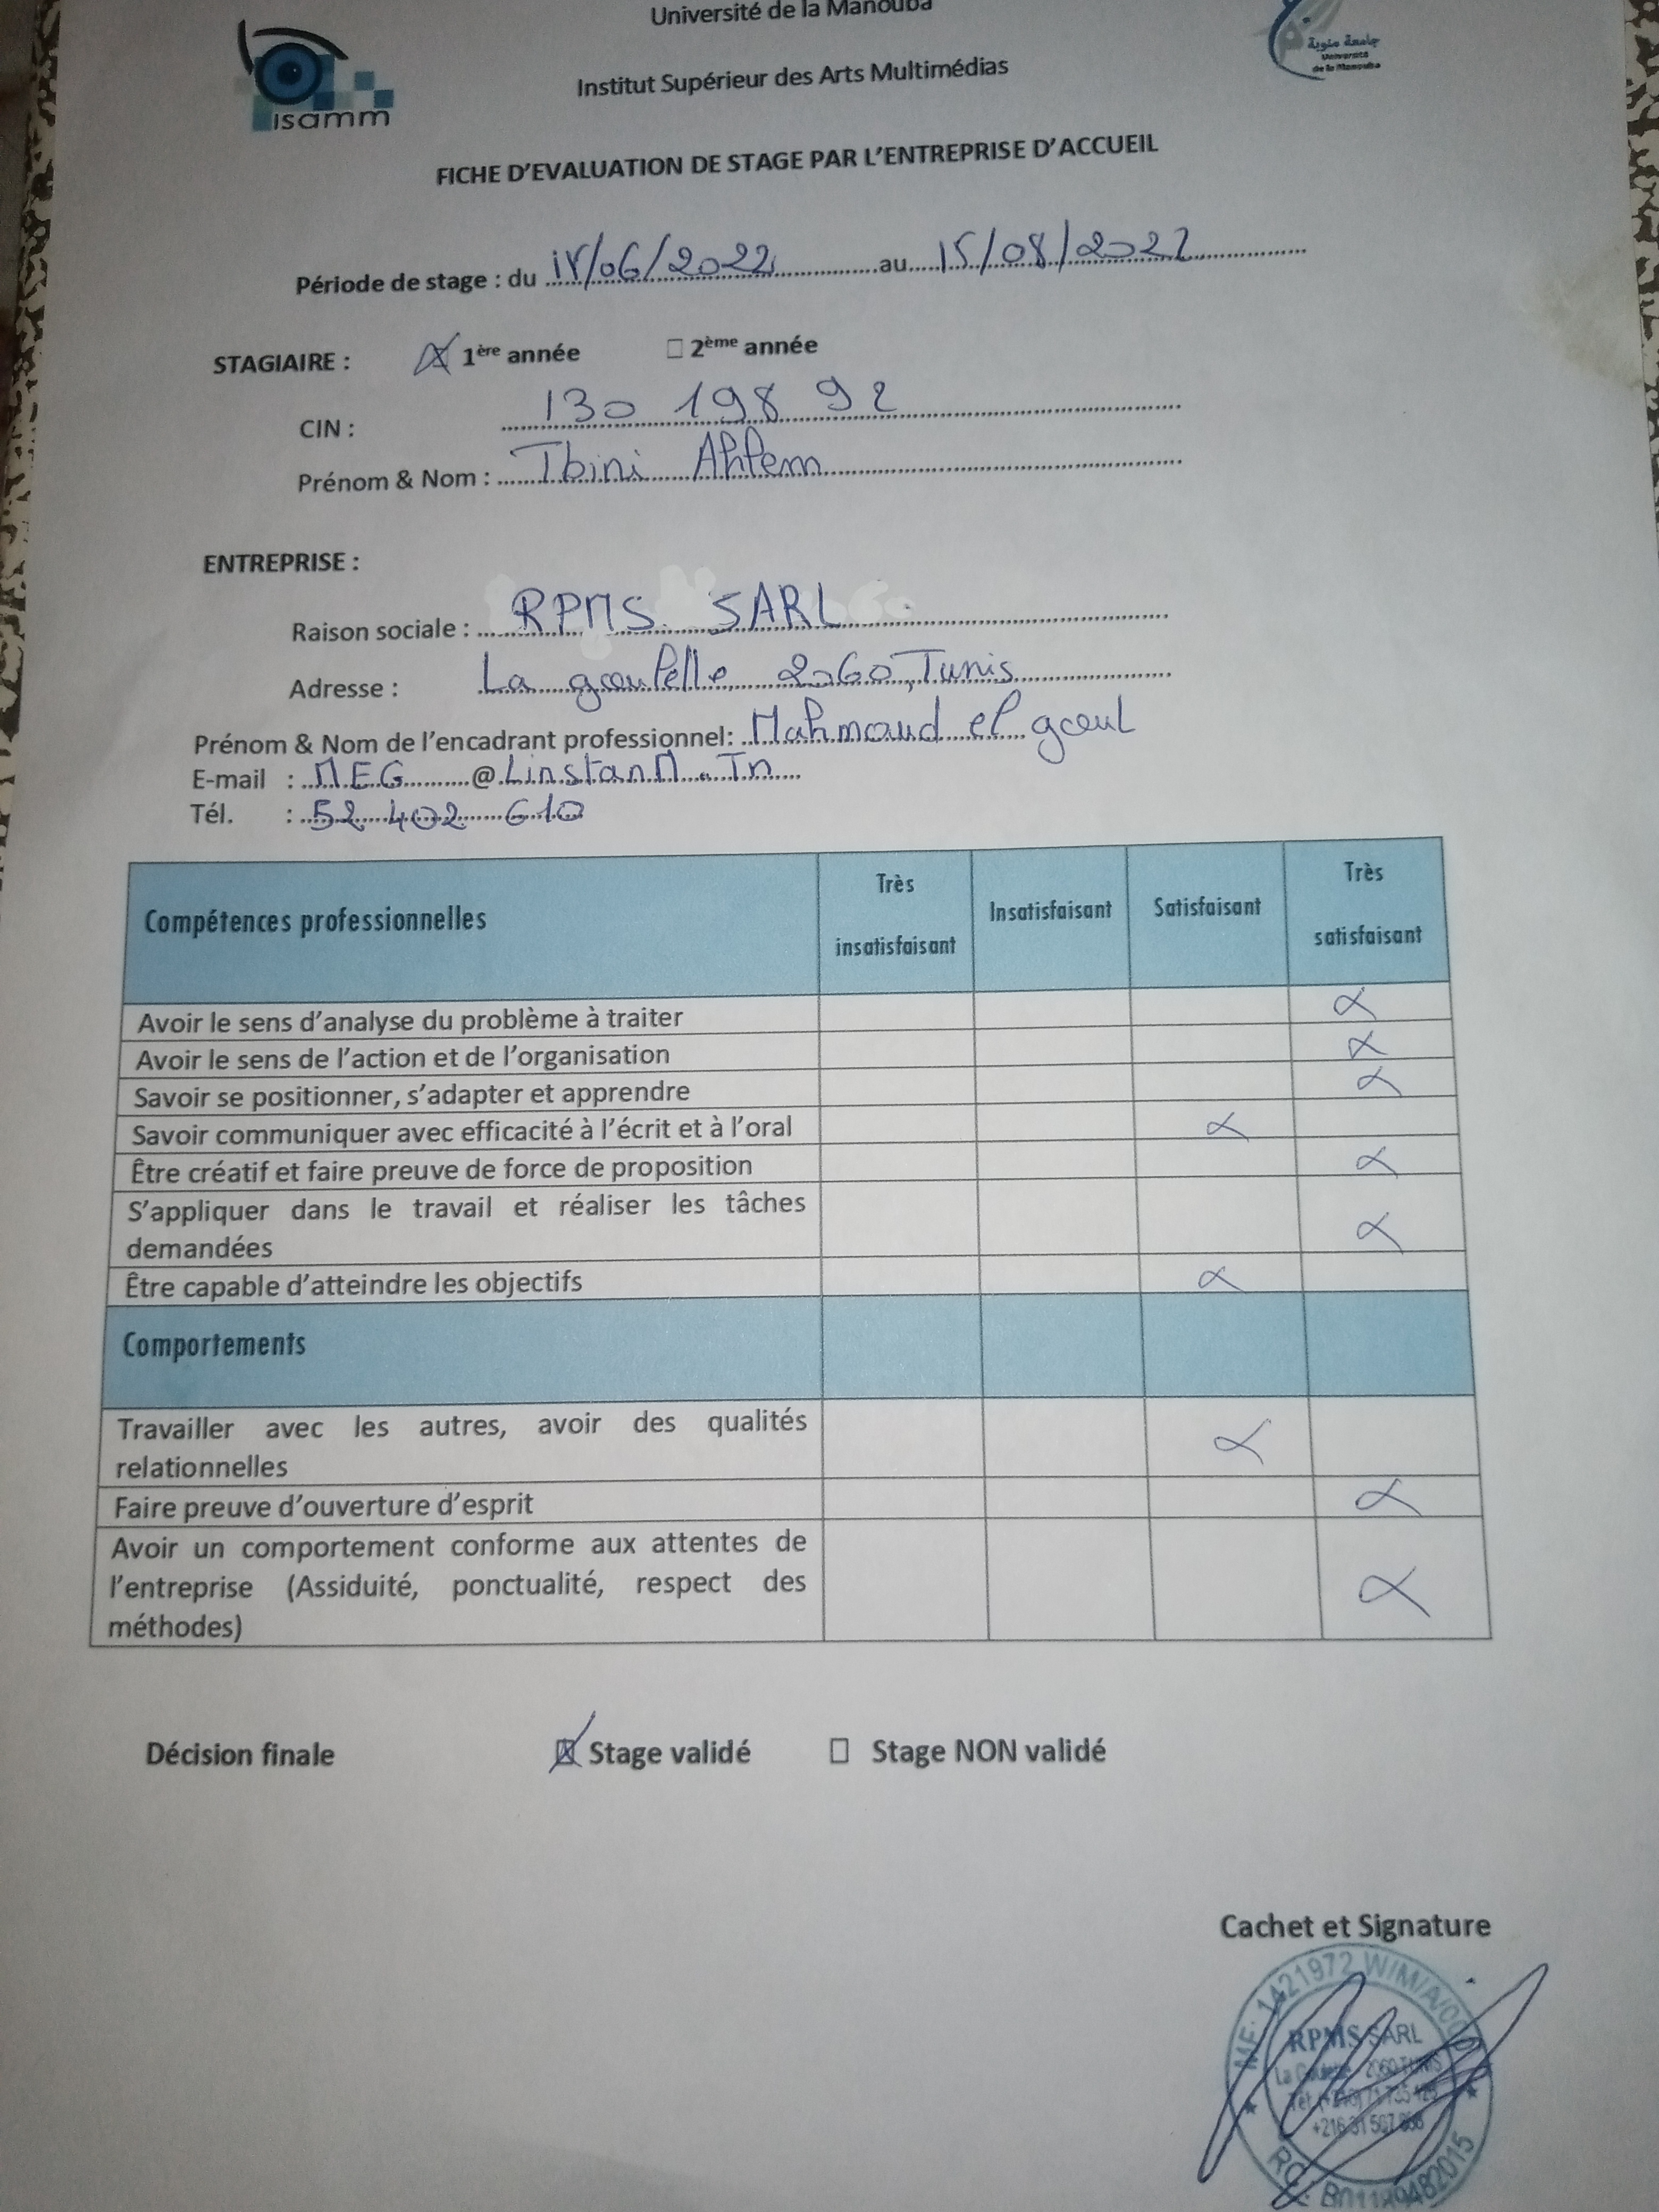 Université de la Manouba
isamm
جامعة منوبة
Université
de la Manouba
Institut Supérieur des Arts Multimédias
FICHE D'EVALUATION DE STAGE PAR L'ENTREPRISE D'ACCUEIL
Période de stage : du 15/06/2022 au 15/08/2022
STAGIAIRE : 1ère année 2ème année
CIN : 130 198 92
Prénom & Nom : Tbini Ahlem
ENTREPRISE :
Raison sociale : RPMS SARL
Adresse : La goulelle 2060, Tunis
Prénom & Nom de l'encadrant professionnel: Mahmoud el goul
E-mail : MEG @ LinstanM.Tn
Tél. : 52 402 610
Compétences professionnelles Très insatisfaisant Insatisfaisant Satisfaisant Très satisfaisant
Avoir le sens d'analyse du problème à traiter
Avoir le sens de l'action et de l'organisation
Savoir se positionner, s'adapter et apprendre
Savoir communiquer avec efficacité à l'écrit et à l'oral
Être créatif et faire preuve de force de proposition
S'appliquer dans le travail et réaliser les tâches
demandées
Être capable d'atteindre les objectifs
Comportements
Travailler avec les autres, avoir des qualités
relationnelles
Faire preuve d'ouverture d'esprit
Avoir un comportement conforme aux attentes de
l'entreprise (Assiduité, ponctualité, respect des
méthodes)
Décision finale Stage validé Stage NON validé
Cachet et Signature
MF: 1421972 W/M/A/000
RPMS SARL
La Goulette 2060 TUNIS